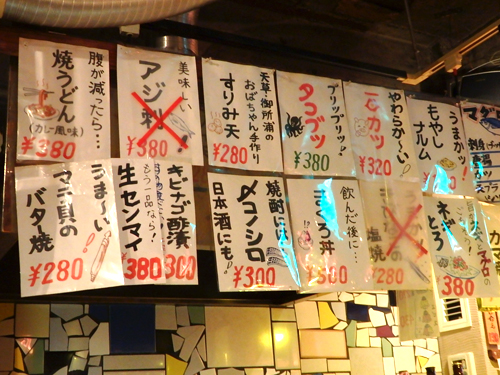 腹が減ったら…
焼うどん
(カレー風味)
¥380
美味しい
アジ刺
天草・御所浦の
おばちゃん手作り
すりみ天
¥280
プリップリッ!!
タコブツ
¥380
やわらか〜い
¥320
うまかッ
もやし
ナムル
¥160
うま〜い!
マテ貝の
バター焼
¥280
もう一品なら!
生センマイ
¥380
キビナゴ酢漬
¥300
焼酎に
メコノシロ
日本酒にも!!
¥300
飲んだ後に…
まぐろ丼
¥380
塩焼
ネギ
とろ
¥380